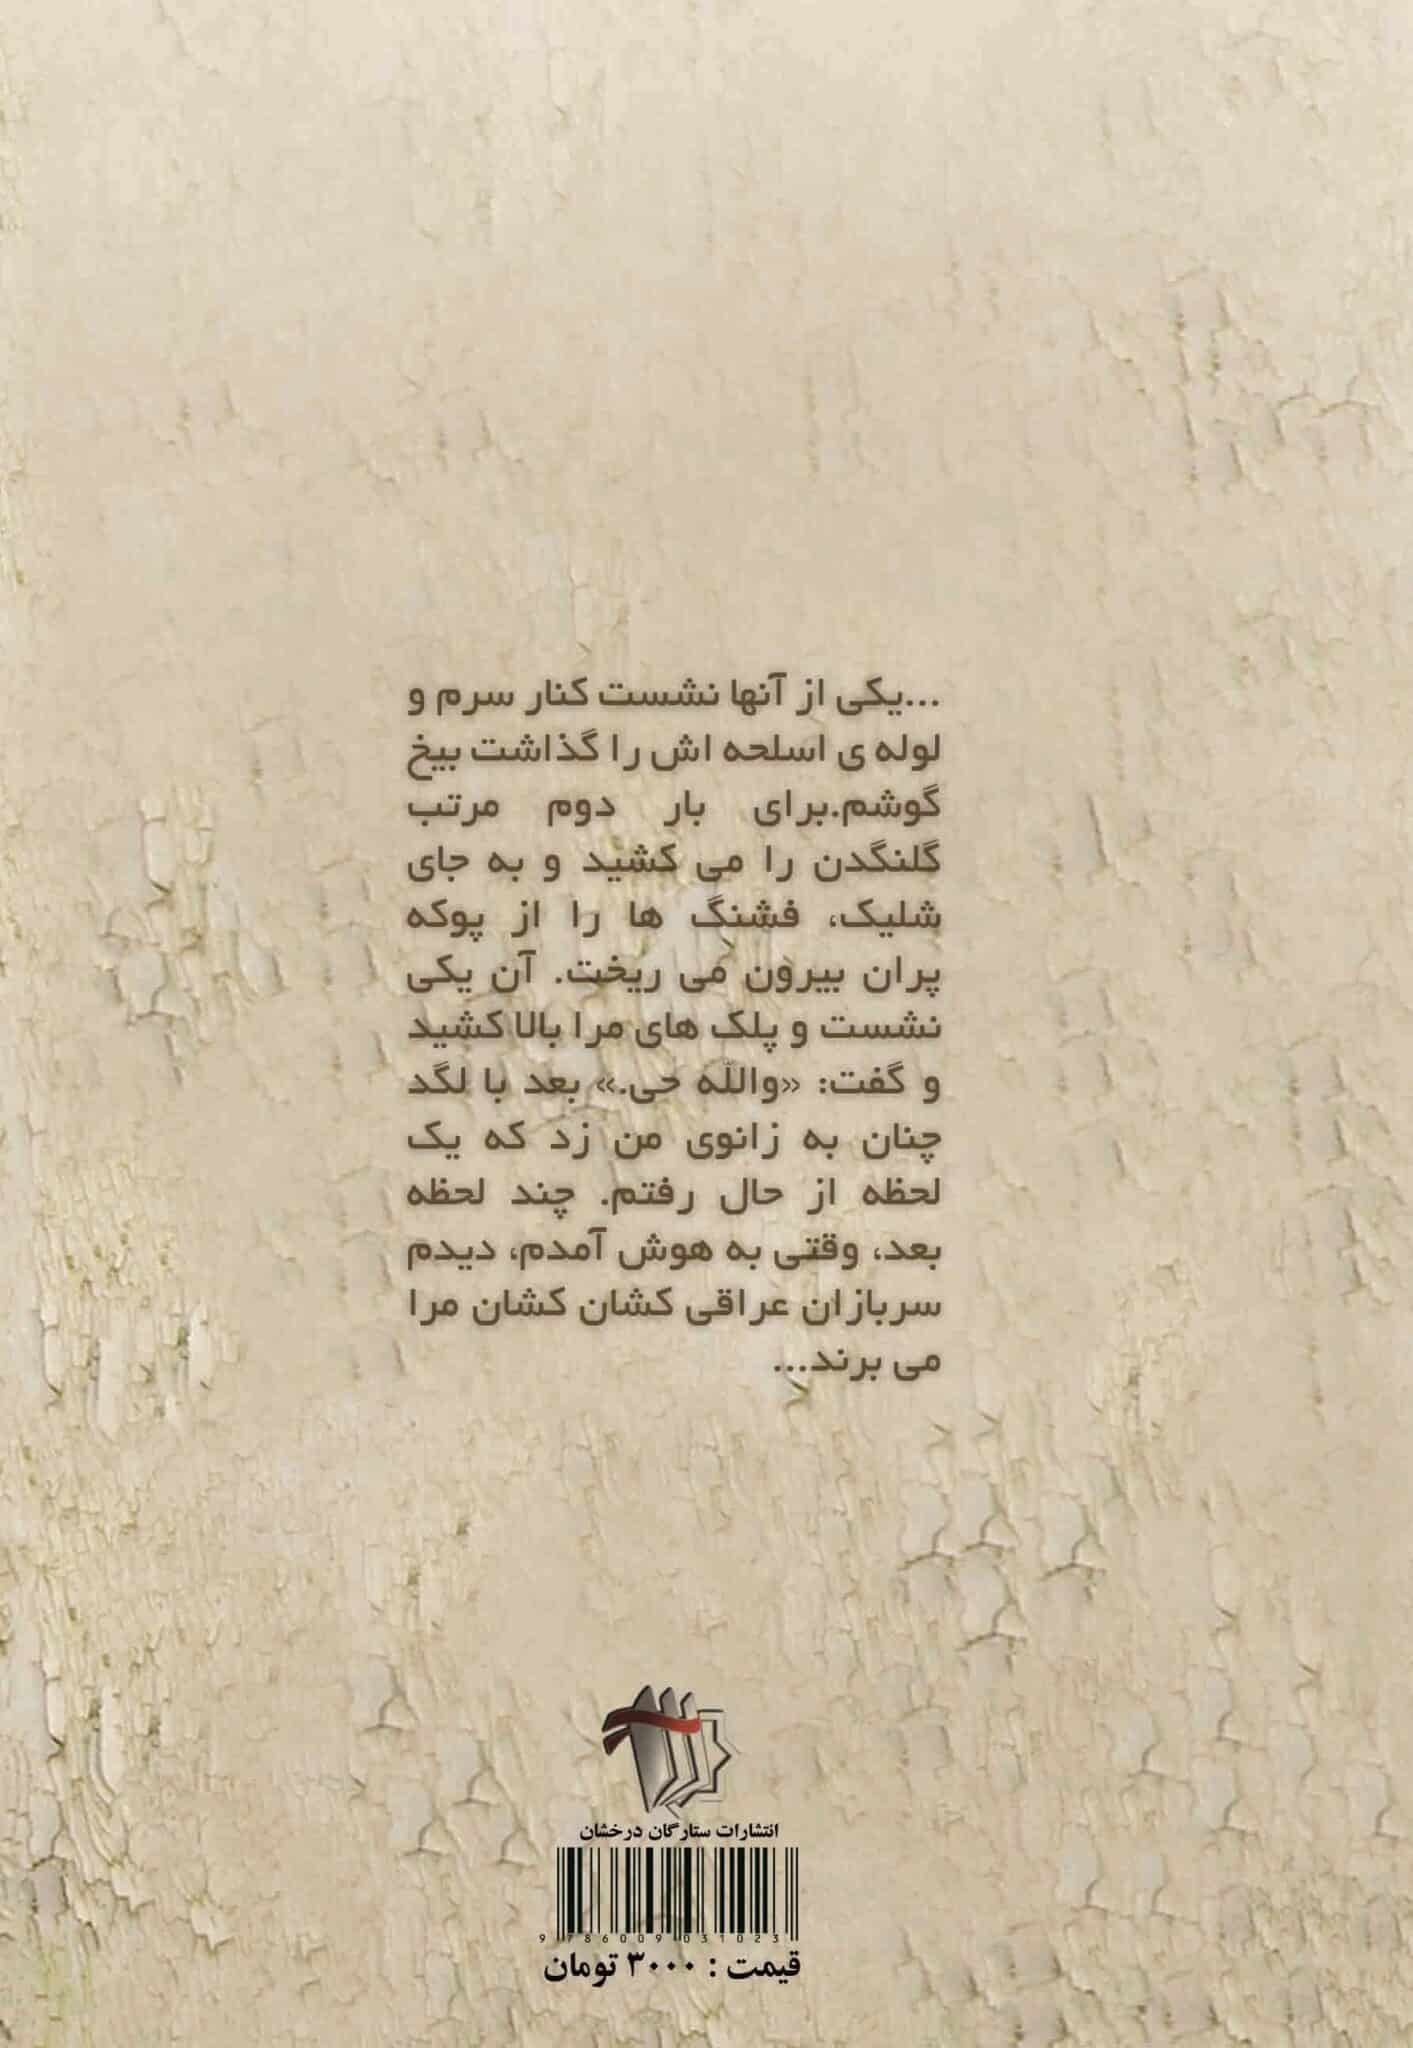 ...یکی از آنها نشست کنار سرم و
لوله ی اسلحه اش را گذاشت بیخ
گوشم.برای بار دوم مرتب
گلنگدن را می کشید و به جای
شلیک، فشنگ ها را از پوکه
پران بیرون می ریخت. آن یکی
نشست و پلک های مرا بالا کشید
و گفت: «والله حی.» بعد با لگد
چنان به زانوی من زد که یک
لحظه از حال رفتم. چند لحظه
بعد، وقتی به هوش آمدم، دیدم
سربازان عراقی کشان کشان مرا
می برند...
انتشارات ستارگان درخشان
9 786009 031023
قیمت : ۳۰۰۰ تومان